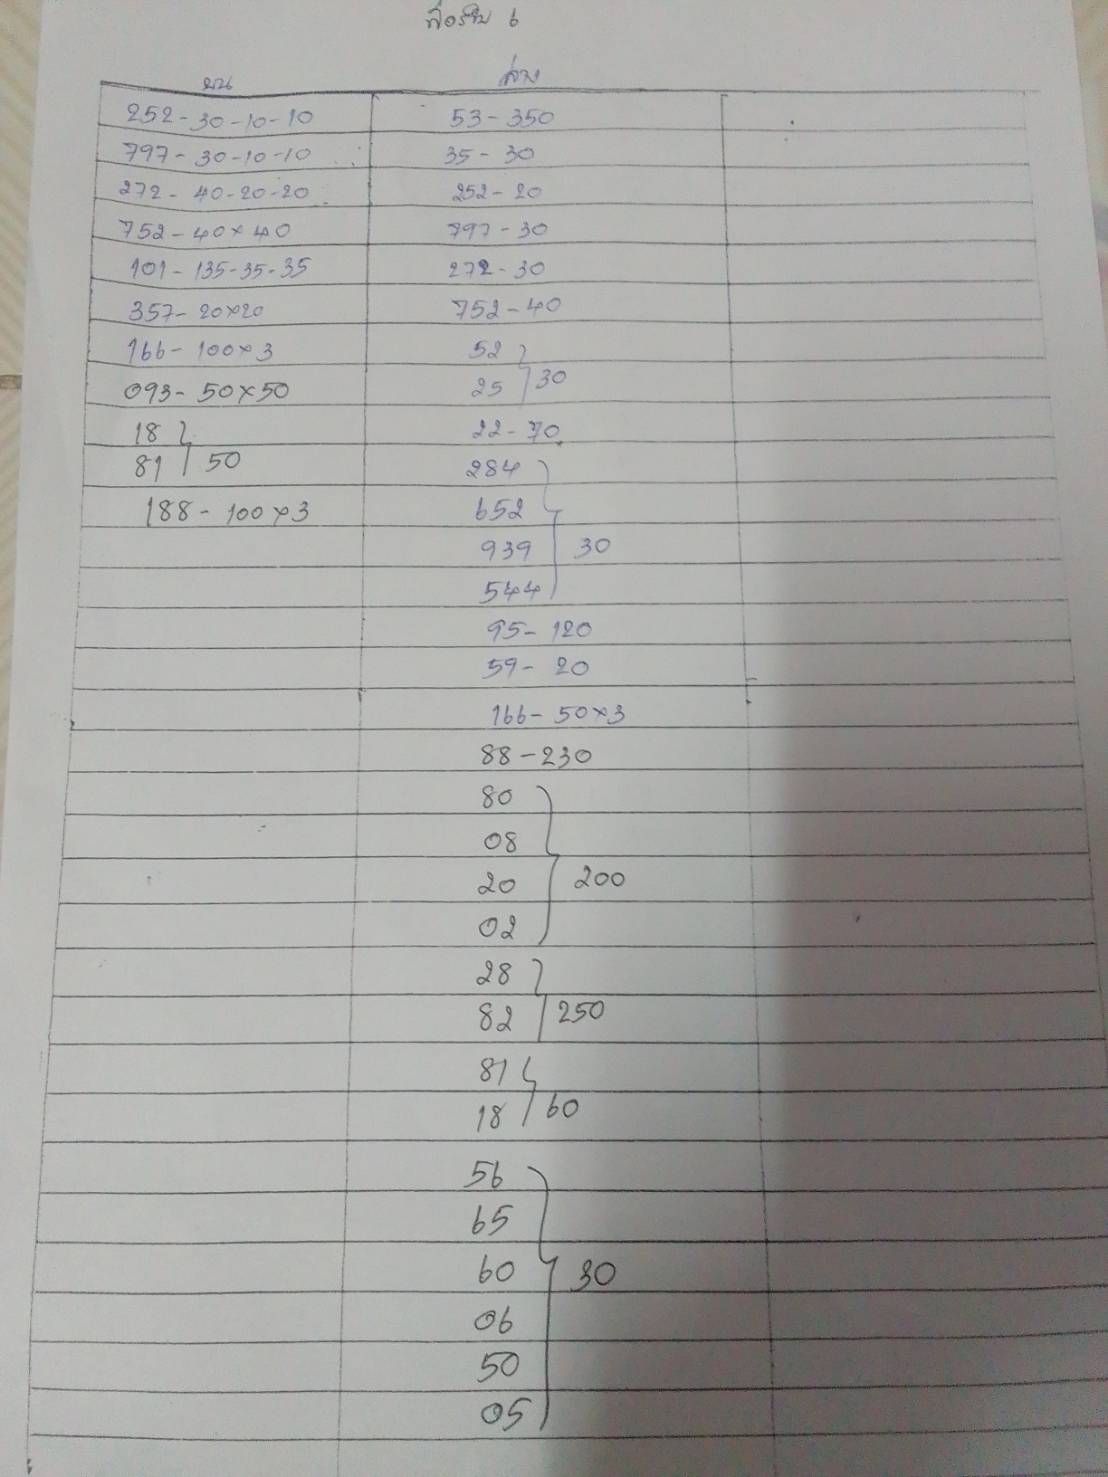 6
บน ล่าง
252-30-10-10 53-350
797-30-10-10 35-30
272-40-20-20 252-20
752-40×40 797-30
101-135-35-35 272-30
357-20×20 752-40
166-100×3 52
093-50×50 25 30
18 22-70
81 50 284
188-100×3 652
939 30
544
95-120
59-20
166-50×3
88-230
80
08
20 200
02
28
82 250
81
18 60
56
65
60 30
06
50
05